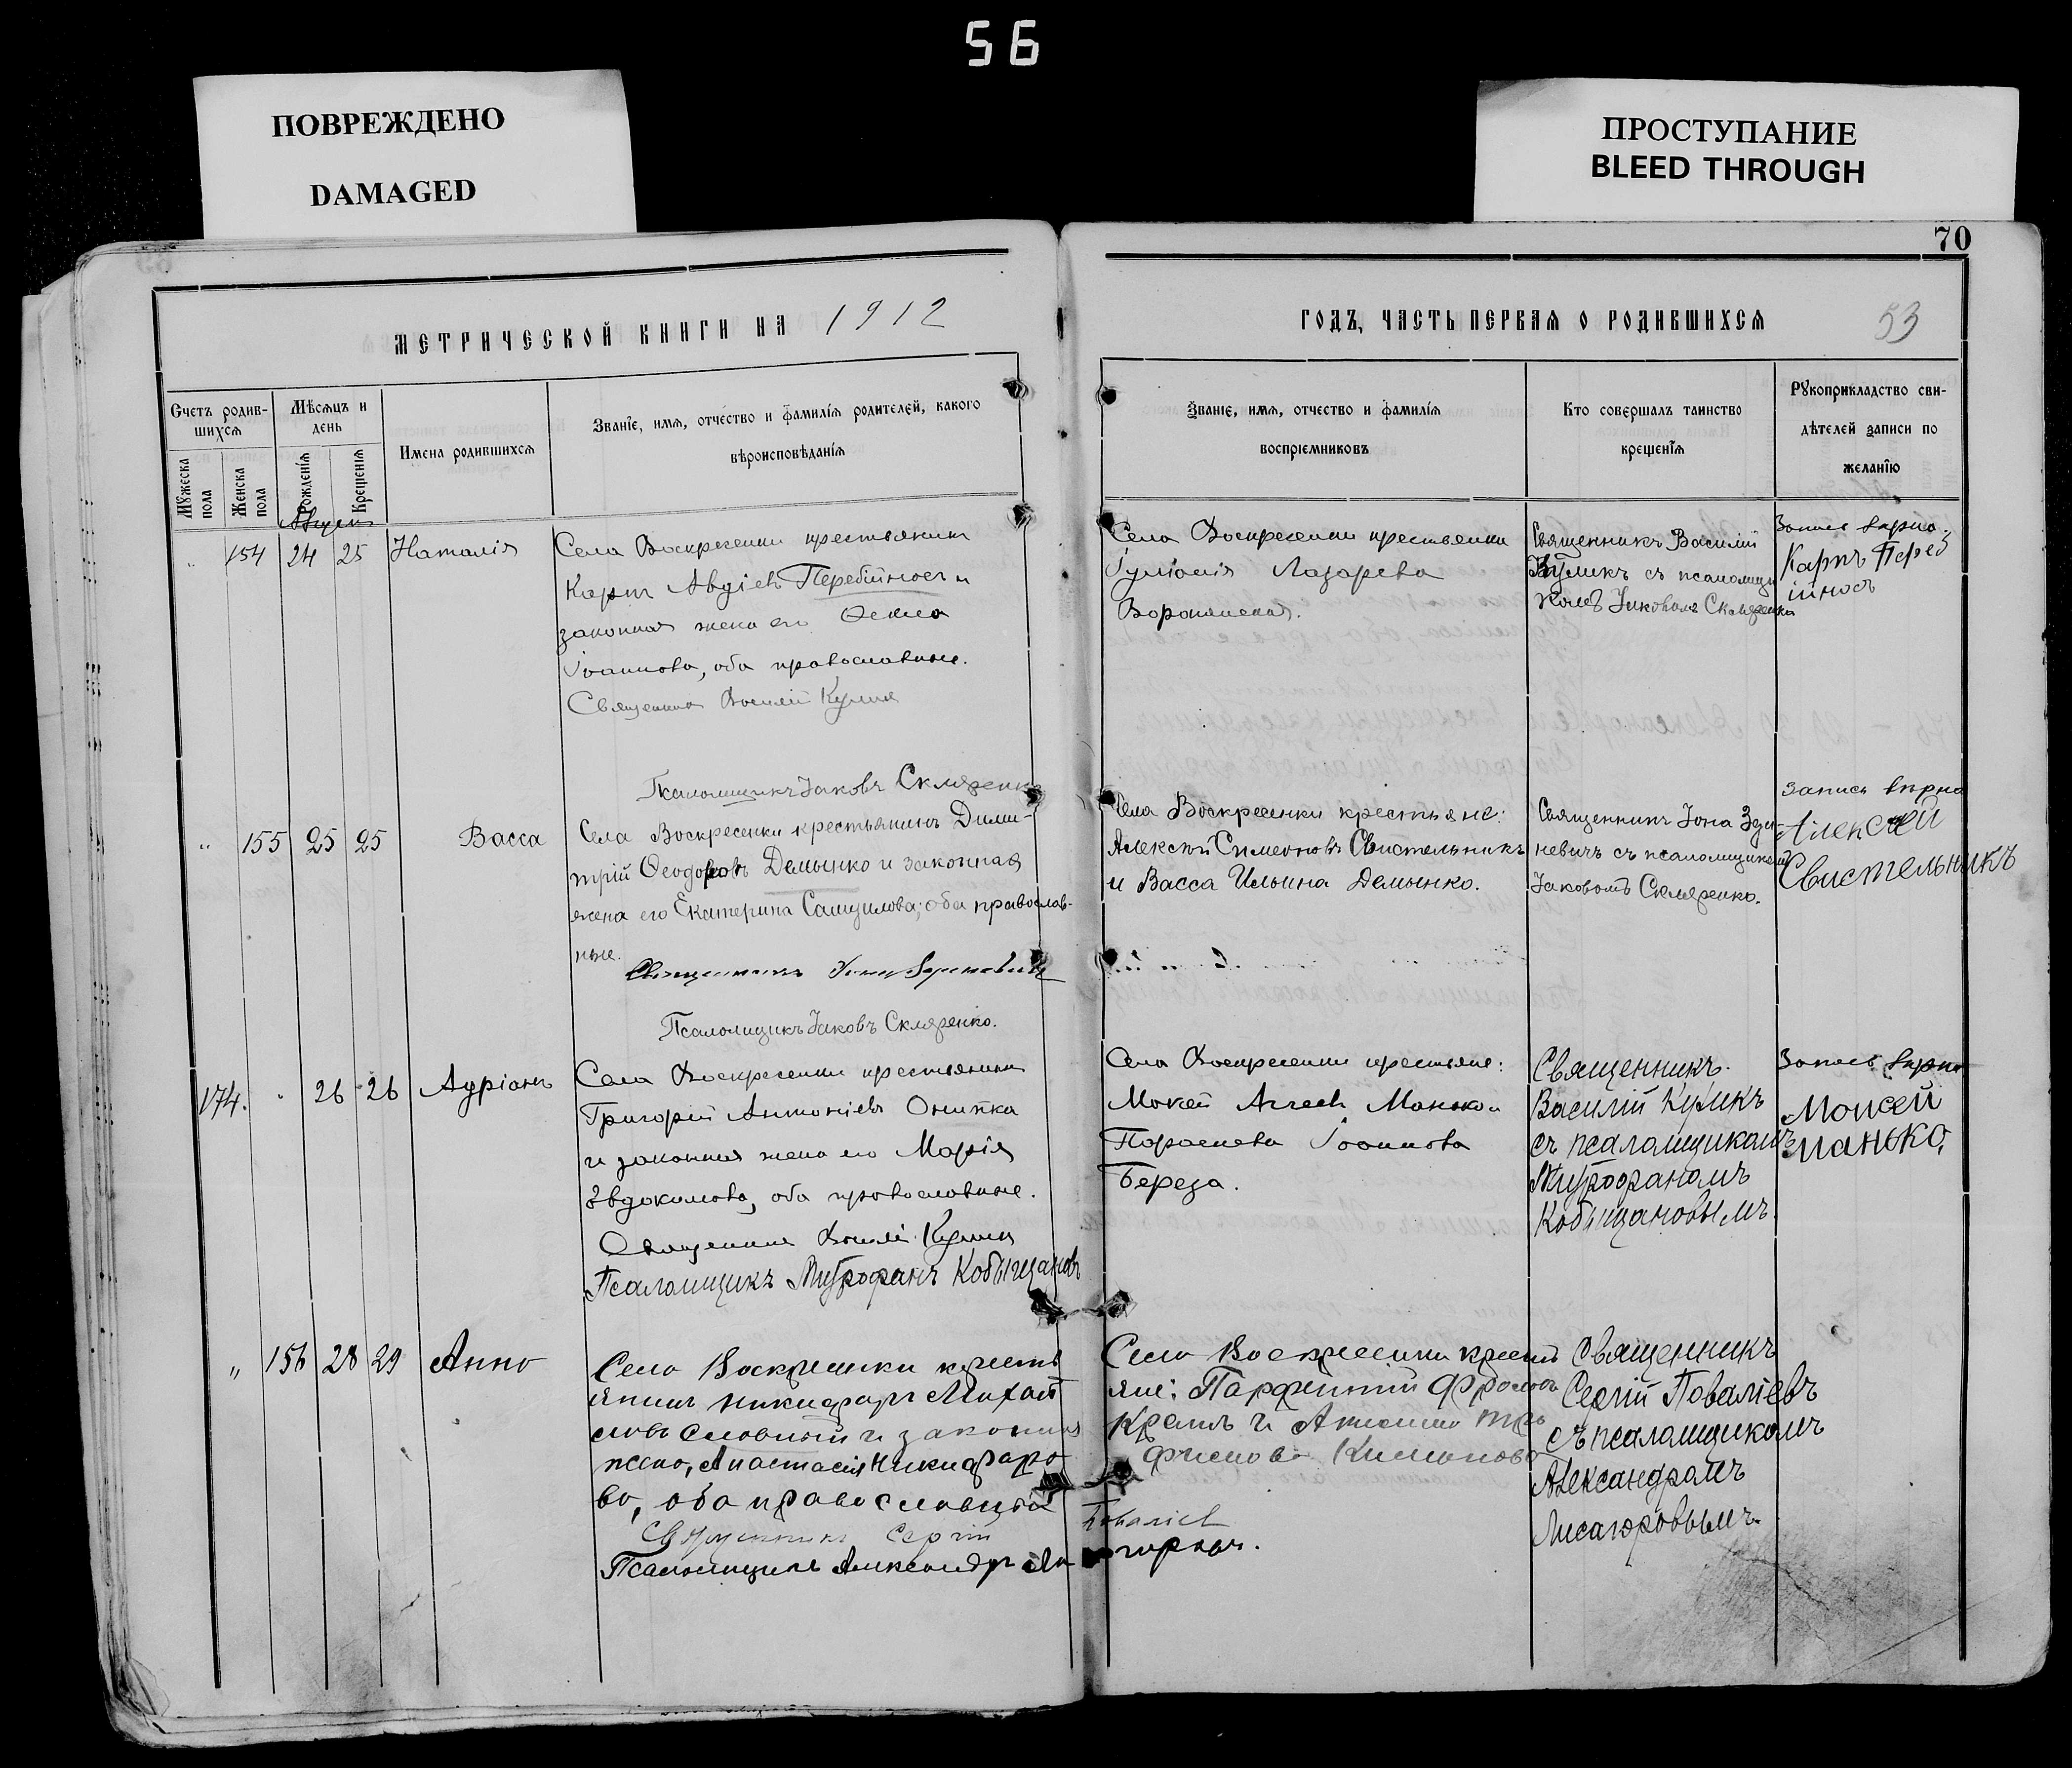 56
ПОВРЕЖДЕНО
DAMAGED
ПРОСТУПАНИЕ
BLEED THROUGH
70
МЕТРИЧЕСКОЙ КНИГИ НА 1912
ГОДЪ, ЧАСТЬ ПЕРВАЯ О РОДИВШИХСЯ
53
Счетъ родив-
шихся
Мужеска
пола
Женска
пола
Мѣсяцъ и
день
Рожденія
Крещенія
Имена родившихся
Званіе, имя, отчество и фамилія родителей, какого
вѣроисповѣданія
Званіе, имя, отчество и фамилія
воспріемниковъ
Кто совершалъ таинство
крещенія
Рукоприкладство сви-
дѣтелей записи по
желанію
Август
" 154 24 25 Наталія
Села Воскресенки крестьянинъ
Карпъ Авдіевъ Перебійносъ и
законная жена его Ѳекла
Іоаннова, оба православные.
Священникъ Василій Куликъ
Псаломщикъ Іаковъ Скляренко
Села Воскресенки крестьянка
Гуліанія Лазарева
Воронянская.
Священникъ Василій
Куликъ съ псаломщи
комъ Іаковомъ Скляренко
Запись вѣрна.
Карпъ Переб
ійносъ
" 155 25 25 Васса
Села Воскресенки крестьянинъ Дими-
трій Ѳеодоровъ Демынко и законная
жена его Екатерина Самуилова; оба православ-
ные.
Священникъ Іона Зданевичъ
Псаломщикъ Іаковъ Скляренко.
Села Воскресенки крестьяне:
Алексѣй Симеоновъ Свистельникъ
и Васса Ильина Демынко.
Священникъ Іона Зда-
невичъ съ псаломщикомъ
Іаковомъ Скляренко.
Запись вѣрна
Алексей
Свистельникъ
174. " 26 26 Адріанъ
Села Воскресенки крестьянинъ
Григорій Антоніевъ Онипка
и законная жена его Марія
Евдокимова, оба православные.
Священникъ Василій Куликъ
Псаломщикъ Митрофанъ Кобыщановъ
Села Воскресенки крестьяне:
Мокей Манько и
Параскева Іоаннова
Береза.
Священникъ
Василій Куликъ
съ псаломщикомъ
Митрофаномъ
Кобыщановымъ.
Запись вѣрна
Моисей
Манько.
" 156 28 29 Анна
Села Воскресенки кресть
янинъ Никифоръ Михаи
ловъ и законная
жена, Анастасія Никифоро
ва, оба православные
Священникъ Сергій Поваліевъ
Псаломщикъ Александръ
Села Воскресенки кресть
яне: Парфентій Фроловъ
и Анисія
Священникъ
Сергій Поваліевъ
съ псаломщикомъ
Александромъ
Лисагоровымъ.